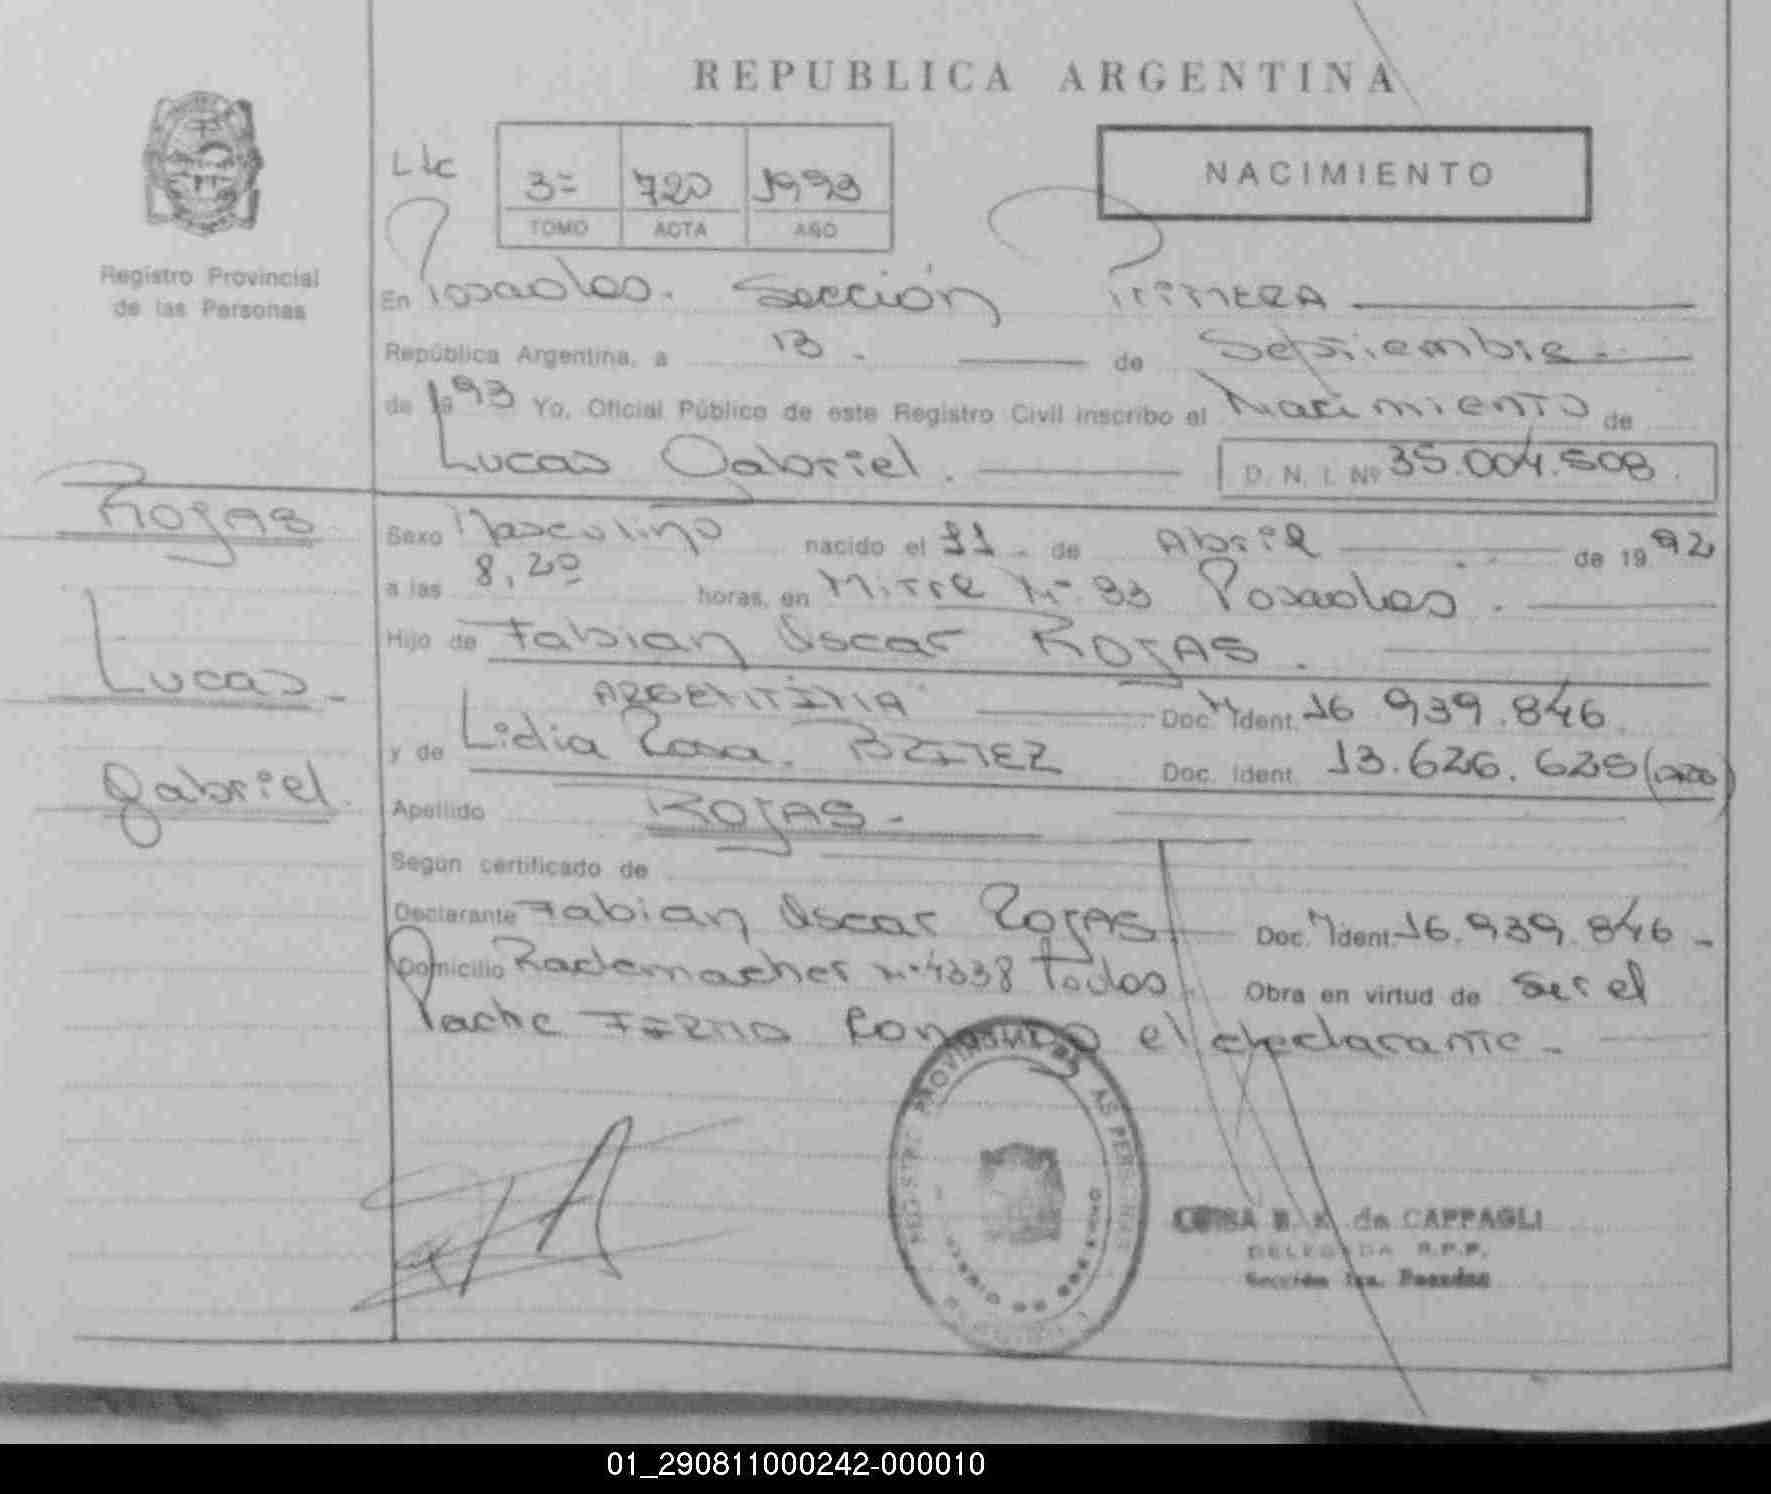 REPUBLICA ARGENTINA
NACIMIENTO
3= 720 1993
TOMO ACTA AÑO
Registro Provincial
de las Personas
En Posadas. Sección Primera
República Argentina, a 13. de Septiembre.
de 1993 Yo, Oficial Público de este Registro Civil inscribo el Nacimiento de
Lucas Gabriel. D. N. I. Nº 35.004.508.
Rojas
Lucas.
Gabriel.
Sexo Masculino nacido el 11. de Abril de 1992
a las 8,20 horas, en Mitre Nº 93 Posadas.
Hijo de Fabian Oscar ROJAS.
ARGENTINA Doc. Ident. 16.939.846.
y de Lidia Rosa. Doc. Ident. 13.626.625
Apellido ROJAS.
Según certificado de
Declarante Fabian Oscar Rojas Doc. Ident. 16.939.846.
Domicilio Rademacher Nº 4338 todos. Obra en virtud de ser el
el declarante.
de CAPPAGLI
DELEGADA R.P.P.
Sección 1ra. Posadas
01_290811000242-000010